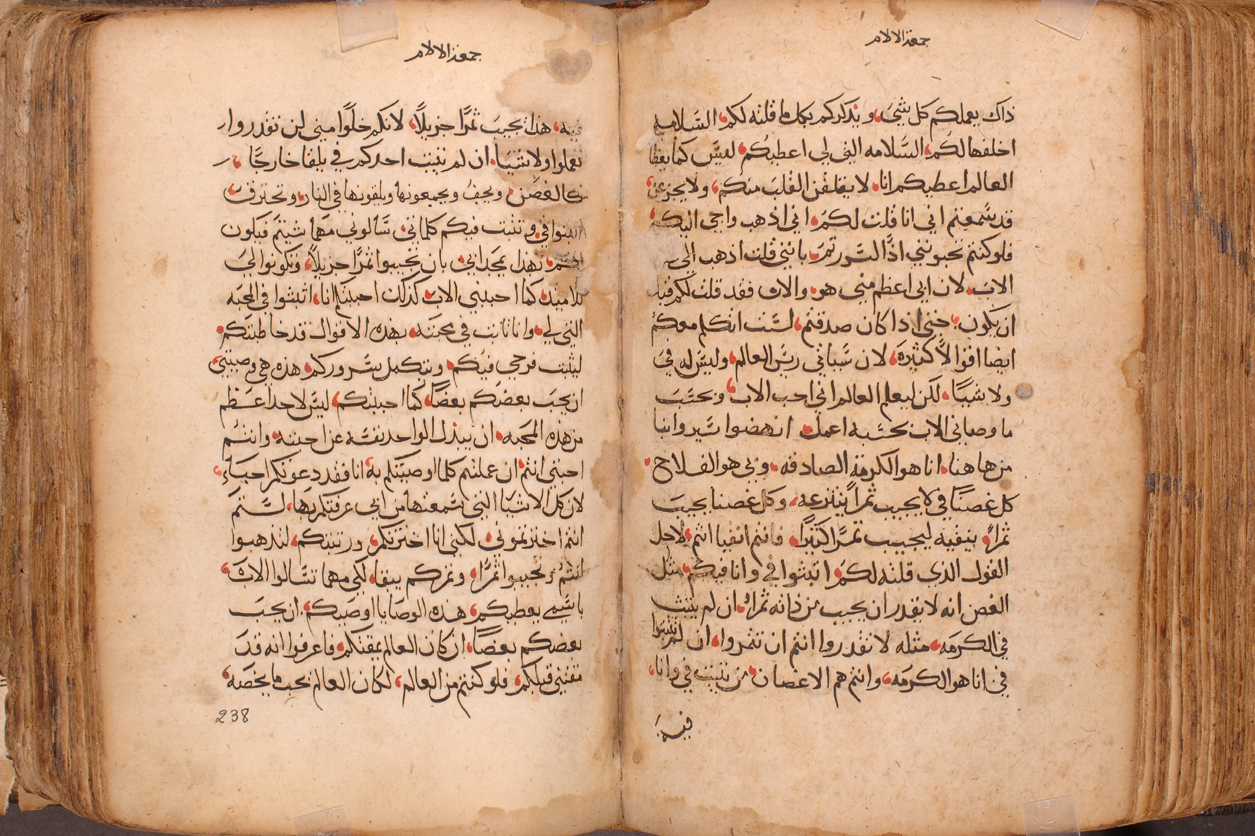 جمعة الالام
ذاك يعلمكم كل شيء ويذكركم بكلما قلته لكم السلامه
اخلفها لكم السلامه التي لي اعطيكم ليس كما يعطي
العالم اعطيكم انا لا يقلقن القلب منكم ولا يجزعن
قد سمعتم اني انا قلت لكم اني اذهب واجي اليكم
فلو كنتم تحبونني اذًا لسررتم بانني قلت اذهب الى
الاب لان ابي اعظم مني هو والان فقد قلت لكم قبل
ان يكون حتي اذا كان صدقتم لست اتكلم معكم
ايضا اقوالا كثيرة لان سياتي ريس العالم وليس له في
ولا شيئا لكن ليعلم العالم اني احب الاب وبحسب
ما وصاني الاب بحسبه اعمل انهضوا سيروا بنا
من هاهنا انا هو الكرمة الصادقه وبي هو الفلاح
كل غصنا في لا يجيب ثمرا ينتزعه وكل غصنا يجيب
ثمرا ينقيه ليجيب ثمرًا كثيرًا فانتم انقيا انتم لاجل
القول الذي قلته لكم اثبتوا في وانا فيكم مثل
الغصن انه لا يقدر ان يجيب من ذاته ثمرا ان لم يثبت
في الكرمه مثله لا تقدروا انتم ان تثمروا ان لم تثبتوا
في انا هو الكرمه وانتم هم الاغصان من يثبت في وانا
فيه
جمعة الالام
فيه هذا يجيب ثمرًا جزيلًا لانكم خلوًا مني لن تقدروا
تعملوا ولا شيا ان لم يثبت احدكم في يلقا خارجًا
كالغصن ويجف ويجمعونها ويلقونها في النار وتحترق
اثبتوا في وتثبت فيكم كلماتي تسالوني مهما شيتم فيكون
لكم بهذا يمجد ابي بان تجيبوا ثمرًا جزيلًا وتكونوا لي
تلاميذ كما احبني الاب كذلك احببتكم انا اثبتوا في المحبه
التي لي وانا ثابت في محبته بهذه الاقوال قد خاطبتكم
ليثبت فرحي فيكم ويتكمل سروركم هذه هي وصيتي
ان يحب بعضكم بعضًا كما احببتكم ليس لاحد اعظم
من هذه المحبه ان يبذل الواحد نفسه عن احبته وانتم
احبتي انتم ان عملتم كلما اوصيتكم به انا فقد دعوتكم احباء
لان كل الاشيا التي سمعتها من ابي عرفتكم بها لستم
انتم اخترتموني لكنني انا اخترتكم ورتبتكم لتذهبوا
انتم وتجيبوا ثمرًا وثمركم يبقا لكي مهما تسالوا الاب
باسمي يعطيكم هذه الوصايا اوصيكم ان يحب
بعضكم بعضًا ان كان العالم يمقتكم فاعرفوا انه قد
مقتني قبلكم فلو كنتم من العالم لكان العالم يحب ما يخصه
238